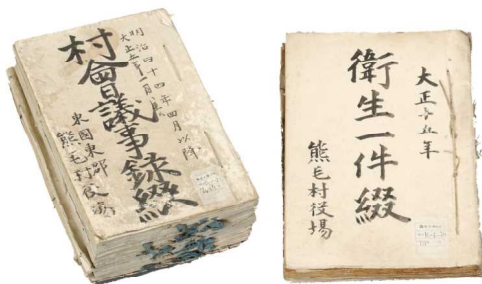 明治四十四年四月以降
村會議事録綴
東國東郡
熊毛村役場
大正十五年
衛生一件綴
熊毛村役場